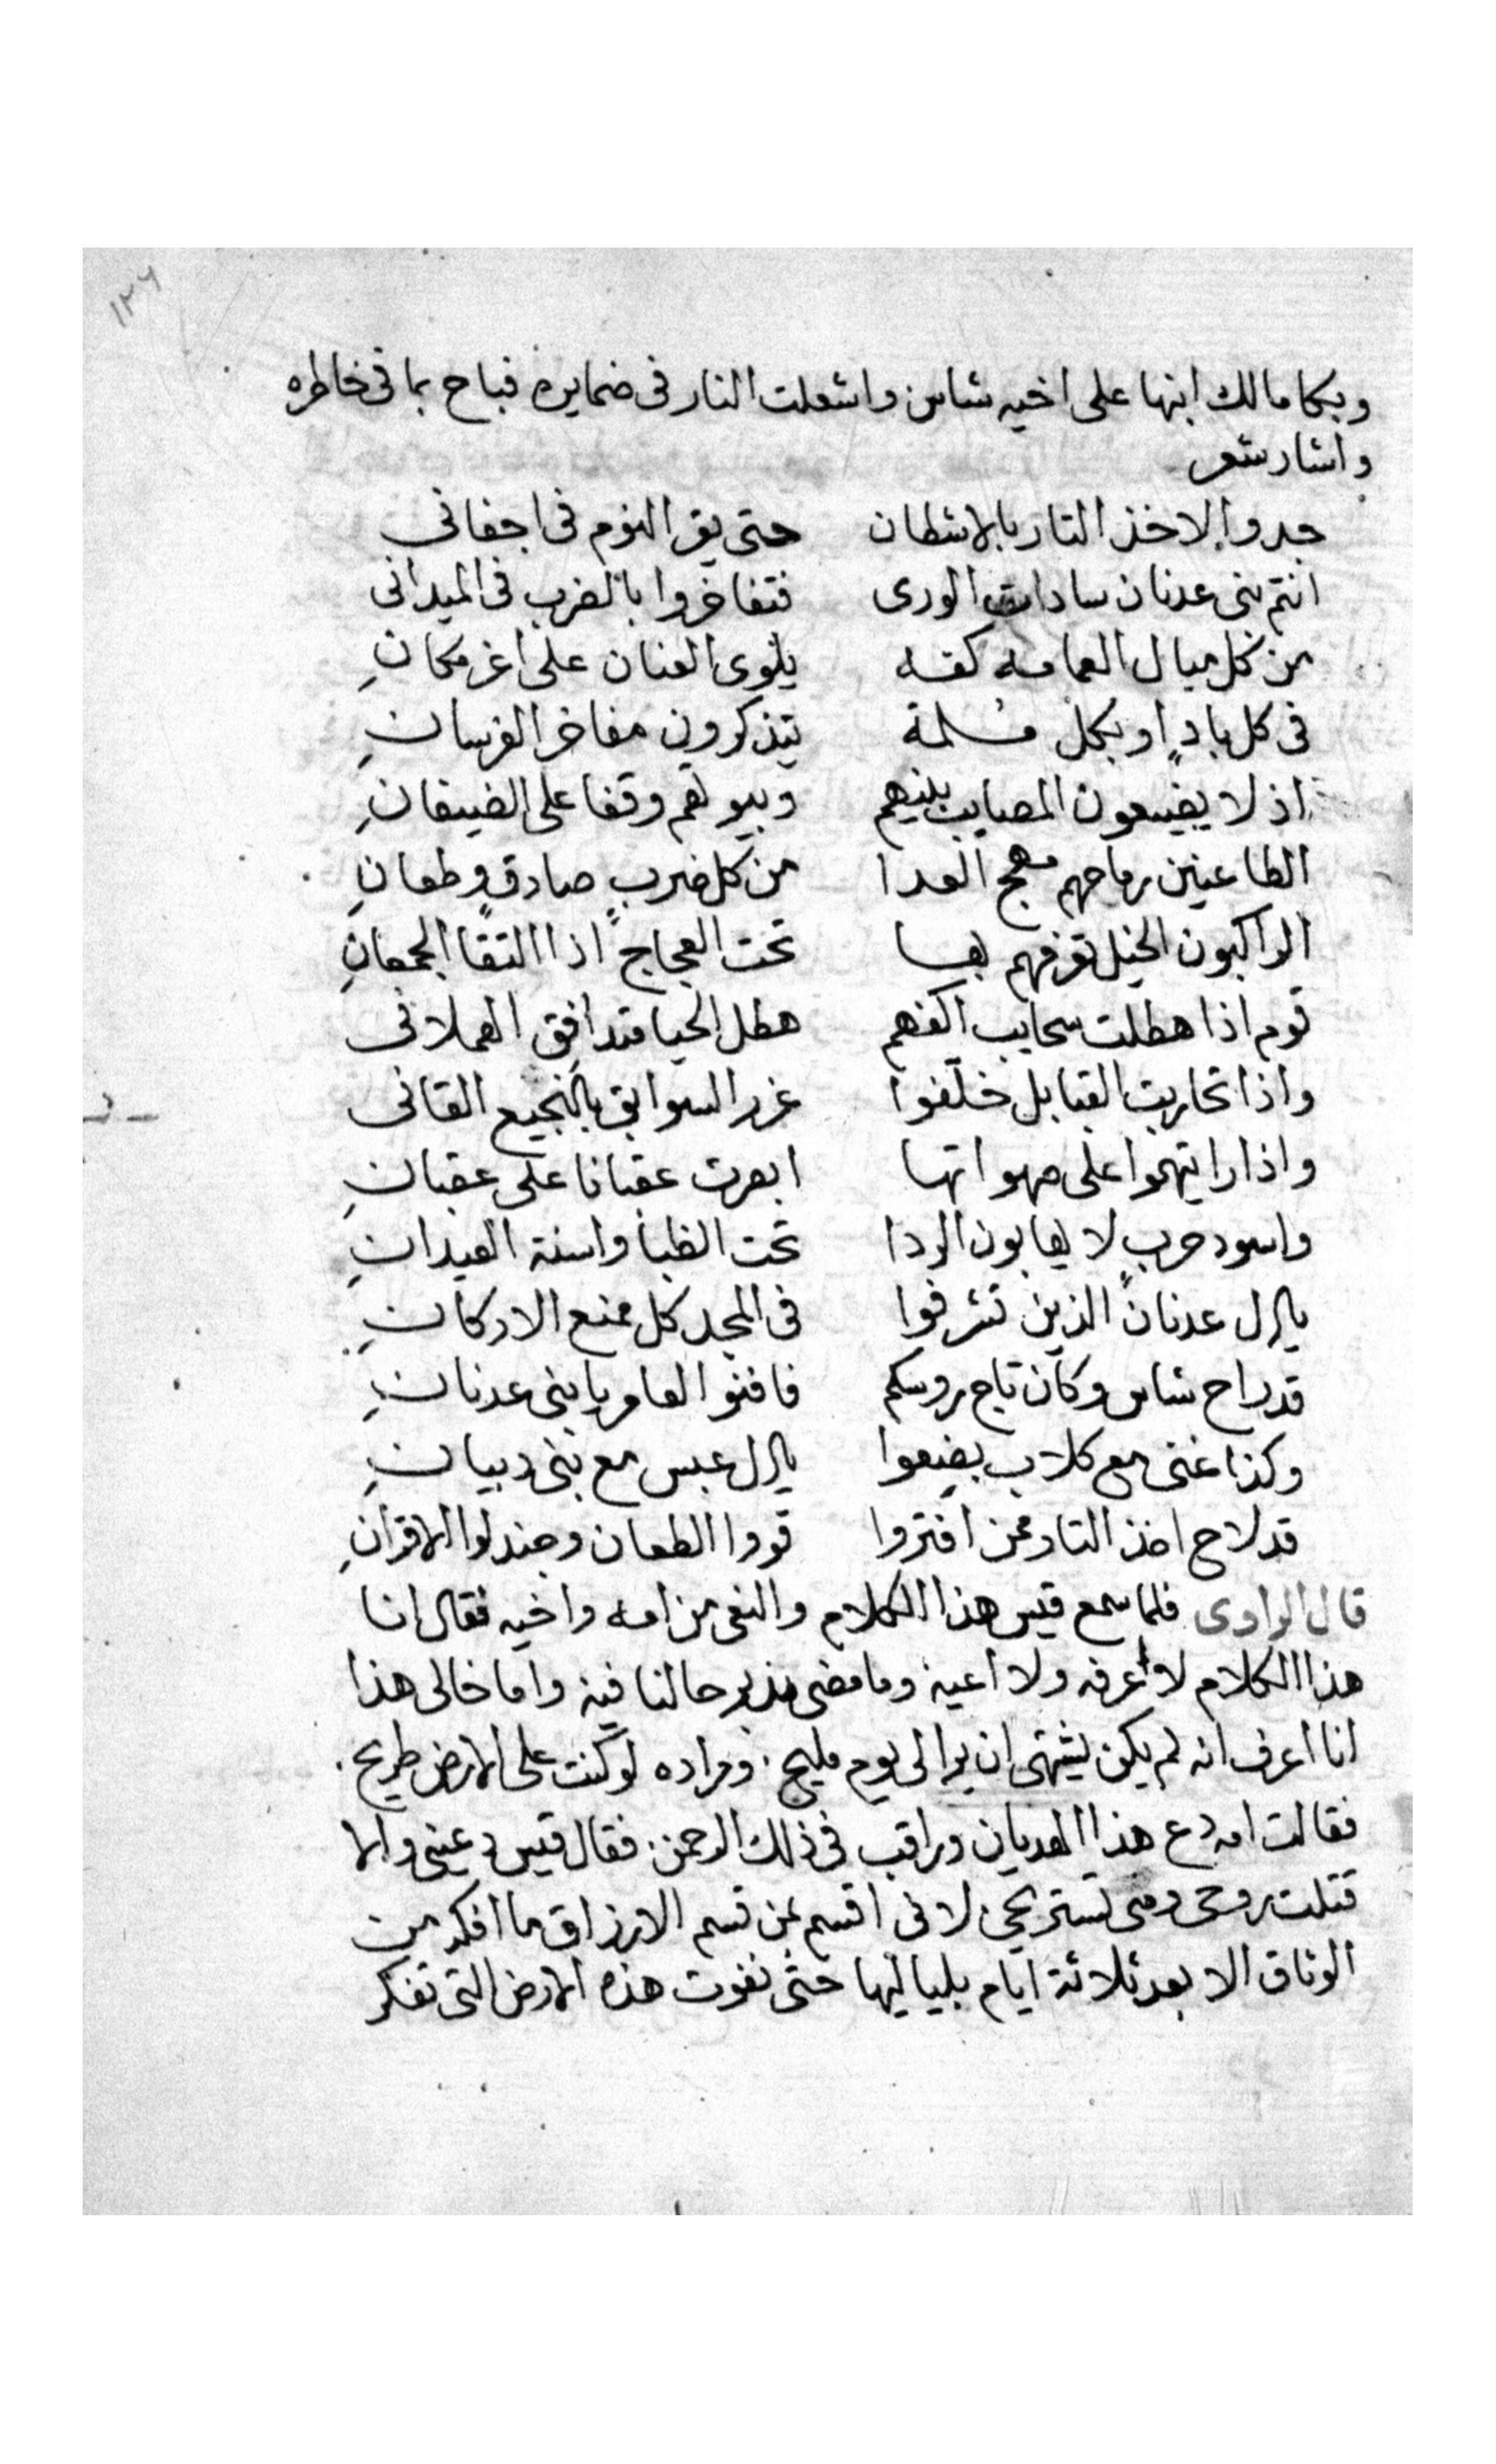 ١٢٦
وبكا مالك ابنها على اخيه شاس واشعلت النار فى ضمايره فباح بما فى خاطره
واشار شعر
جدوا لاخذ التار بالاشطان حتى يقر النوم فى اجفانى
انتم بنى عدنان سادات الورى فتفاخروا بالضرب فى الميدانى
من كل ميال العمامه كفه يلوى العنان على اغر مكانِ
فى كل بادٍ او بكل مسلمة تتذكرون مفاخر الفرسانِ
اذ لا يضيعون المصايب بينهم وبيوتهم وقفا على الضيفانِ
الطاعنين رماحهم مهج العدا من كل ضربٍ صادقٍ وطعانِ
الراكبون الخيل تعرفهم بها تحت العجاج اذا التقا الجمعانِ
قوم اذا هطلت سحايب اكفهم هطل الحيا فتدافق الهملانى
واذا تحاربت القبايل خلّفوا غرر السوابق بالنجيع القانى
واذا رايتهموا على صهواتها ابصرت عقبانا على عقبانِ
واسود حربٍ لا يهابون الردا تحت الظبا واسنة العيدانِ
يال عدنان الذين تشرفوا فى المجد كل ممنع الاركانِ
قد راح شاس وكان تاج روسكم فافنوا العامر يا بنى عدنانِ
وكذا غنى مع كلاب بضيعوا يال عبس مع بنى دبيانِ
قد لاح اخذ التار ممن افتروا قووا الطعان وجندلوا الاقرانِ
قال الراوى فلما سمع قيس هذا الكلام والنعى من امه واخيه فقال انا
هذا الكلام لا اعرفه ولا اعيه وما مضى ندبر حالنا فيه واما خالى هذا
انا اعرف انه لم يكن يشتهى ان يرا لى يوم مليح ومراده لو كنت على الارض طريح
فقالت امه دع هذا الهديان وراقب فى ذلك الرحمن فقال قيس دعينى والا
قتلت روحى ومنى تستريحى لانى اقسم بمن قسم الارزاق ما افكه من
الوثاق الا بعد ثلاثة ايام بلياليها حتى نفوت هذه الارض التى تفكر